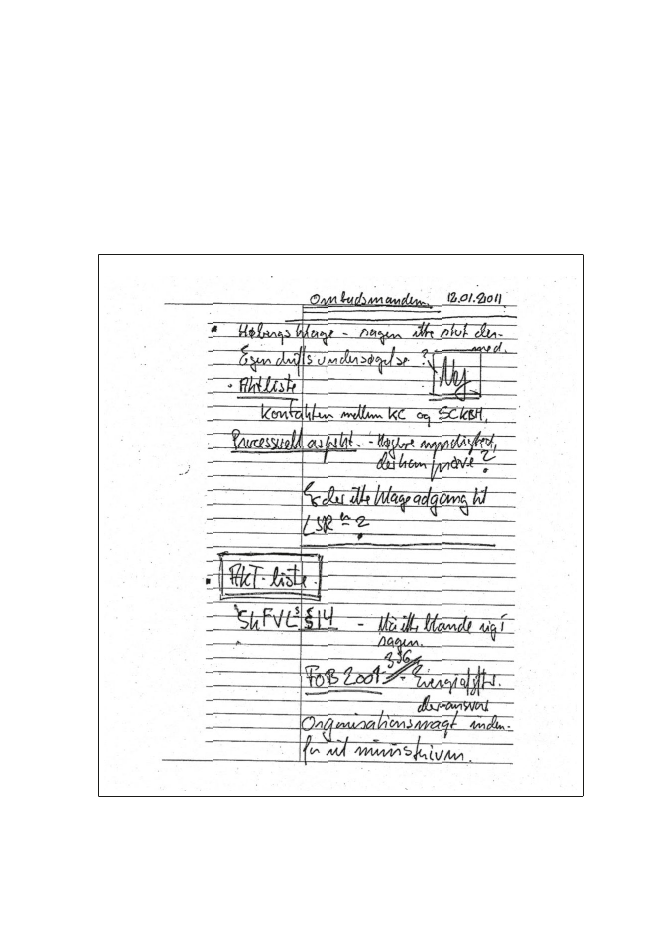 Ombudsmanden. 12.01.2011
Habengs klage - sagen ikke slut der-
med.
Egen driftsundersøgelse ?
Ny
Aktliste
Kontakten mellem KC og SCKBH.
Processuelt aspekt. - Højere myndighed,
der kan prøve ?
Er der ikke klageadgang til
LSR ?
AKT-liste.
SkFVL's §14 - Må ikke blande sig i
sagen.
FOB 2001 - 336 - Energiafgifter.
der-ansvar
Organisationsmagt inden-
for sit ministerium.